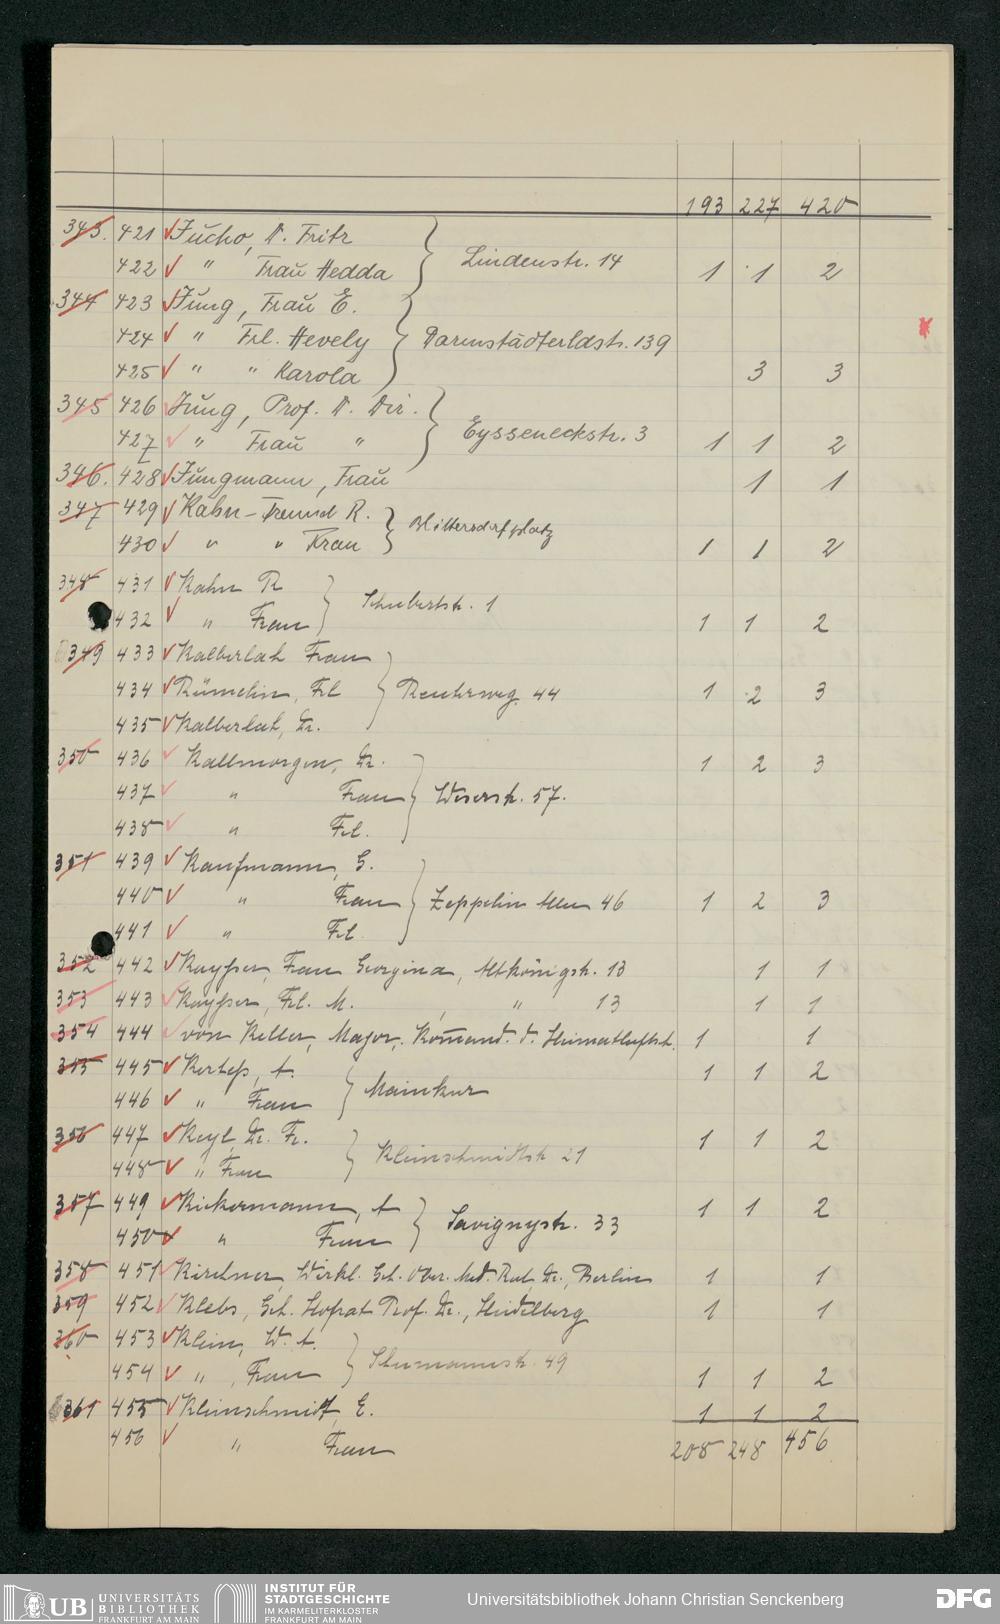 193 227 420
343. 421 Jucho, D. Fritz
422 " Frau Hedda } Lindenstr. 14 1 1 2
344 423 Jung, Frau E.
424 " Frl. Hevely } Darmstädterldstr. 139
425 " " Karola 3 3
345 426 Jung, Prof. D. Dir.
427 " Frau " } Eysseneckstr. 3 1 1 2
346. 428 Jungmann, Frau 1 1
347 429 Kahn-Freund R.
430 " " Frau } Blittersdorfplatz 1 1 2
348 431 Kahn R
432 " Frau } Schubertstr. 1 1 1 2
349 433 Kalberlah Frau
434 Rümelin, Frl } Reuterweg 44 1 2 3
435 Kalberlah, Dr.
350 436 Kallmorgen, Dr. 1 2 3
437 " Frau } Weserstr. 57.
438 " Frl.
351 439 Kaufmann, G.
440 " Frau } Zeppelin Allee 46 1 2 3
441 " Frl.
352 442 Kaysser, Frau Georgina, Altkönigstr. 13 1 1
353 443 Kaysser, Frl. M. " 13 1 1
354 444 von Keller, Major, Komand. d. Heimatluftsch. 1 1
355 445 Kertess, A. 1 1 2
446 " Frau } Mainkur
356 447 Keyl, Dr. Fr. 1 1 2
448 " Frau } Kleinschmidtstr 21
357 449 Kickermann, A 1 1 2
450 " Frau } Savignystr. 33
358 451 Kirchner Wirkl. Geh. Ober. Med. Rat Dr., Berlin 1 1
359 452 Klebs, Geh. Hofrat Prof. Dr., Heidelberg 1 1
360 453 Klein, W. A.
454 " , Frau } Schumannstr. 49 1 1 2
361 455 Kleinschmidt, E. 1 1 2
456 " Frau 208 248 456
UB UNIVERSITÄTS
BIBLIOTHEK
FRANKFURT AM MAIN
INSTITUT FÜR
STADTGESCHICHTE
IM KARMELITERKLOSTER
FRANKFURT AM MAIN
Universitätsbibliothek Johann Christian Senckenberg
DFG